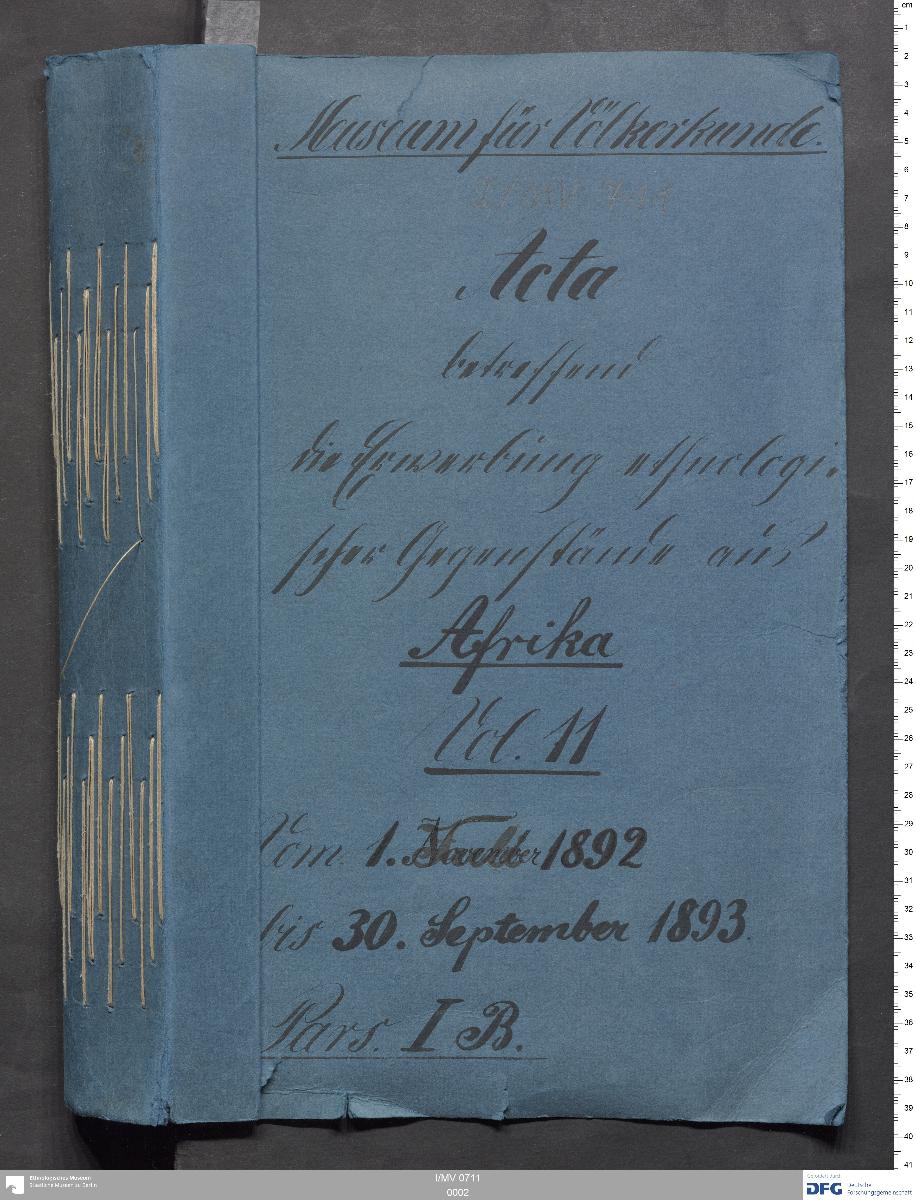 Museum für Völkerkunde.
I/MV 711
Acta
betreffend
die Erwerbung ethnologi-
scher Gegenstände aus
Afrika
Vol. 11
Vom 1. November 1892
bis 30. September 1893.
Pars. I B.
cm
1
2
3
4
5
6
7
8
9
10
11
12
13
14
15
16
17
18
19
20
21
22
23
24
25
26
27
28
29
30
31
32
33
34
35
36
37
38
39
40
41
Ethnologisches Museum
Staatliche Museen zu Berlin
I/MV 0711
0002
Gefördert durch
DFG Deutsche
Forschungsgemeinschaft